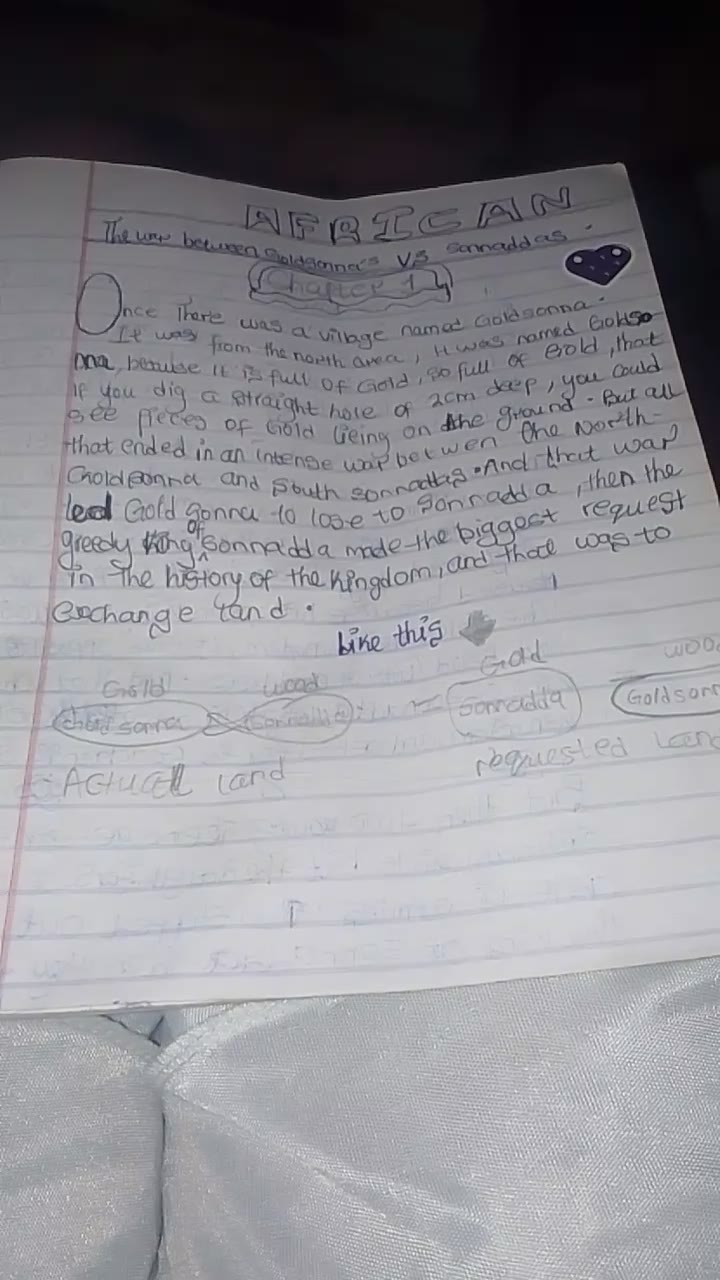 AFRICAN
The war between Goldsonna's VS Sonnaddas.
Chapter 1
Once There was a village named Goldsonna.
It was from the north area, it was named Goldso
nna, becuse it is full of Gold, so full of Gold, that
if you dig a straight hole of 2cm deep, you could
see pieces of Gold lieing on the ground. But all
that ended in an intense war betwen the North-
Goldsonna and South sonnaddas. And that war
lead Goldsonna to lose to Sonnadda, then the
greedy King of Sonnadda made the biggest request
in The history of the Kingdom, and that was to
exchange land.
Like this
Gold Wood Gold Woo
Goldsonna Sonnadda = Sonnadda Goldsonn
Actuall Land requested Land